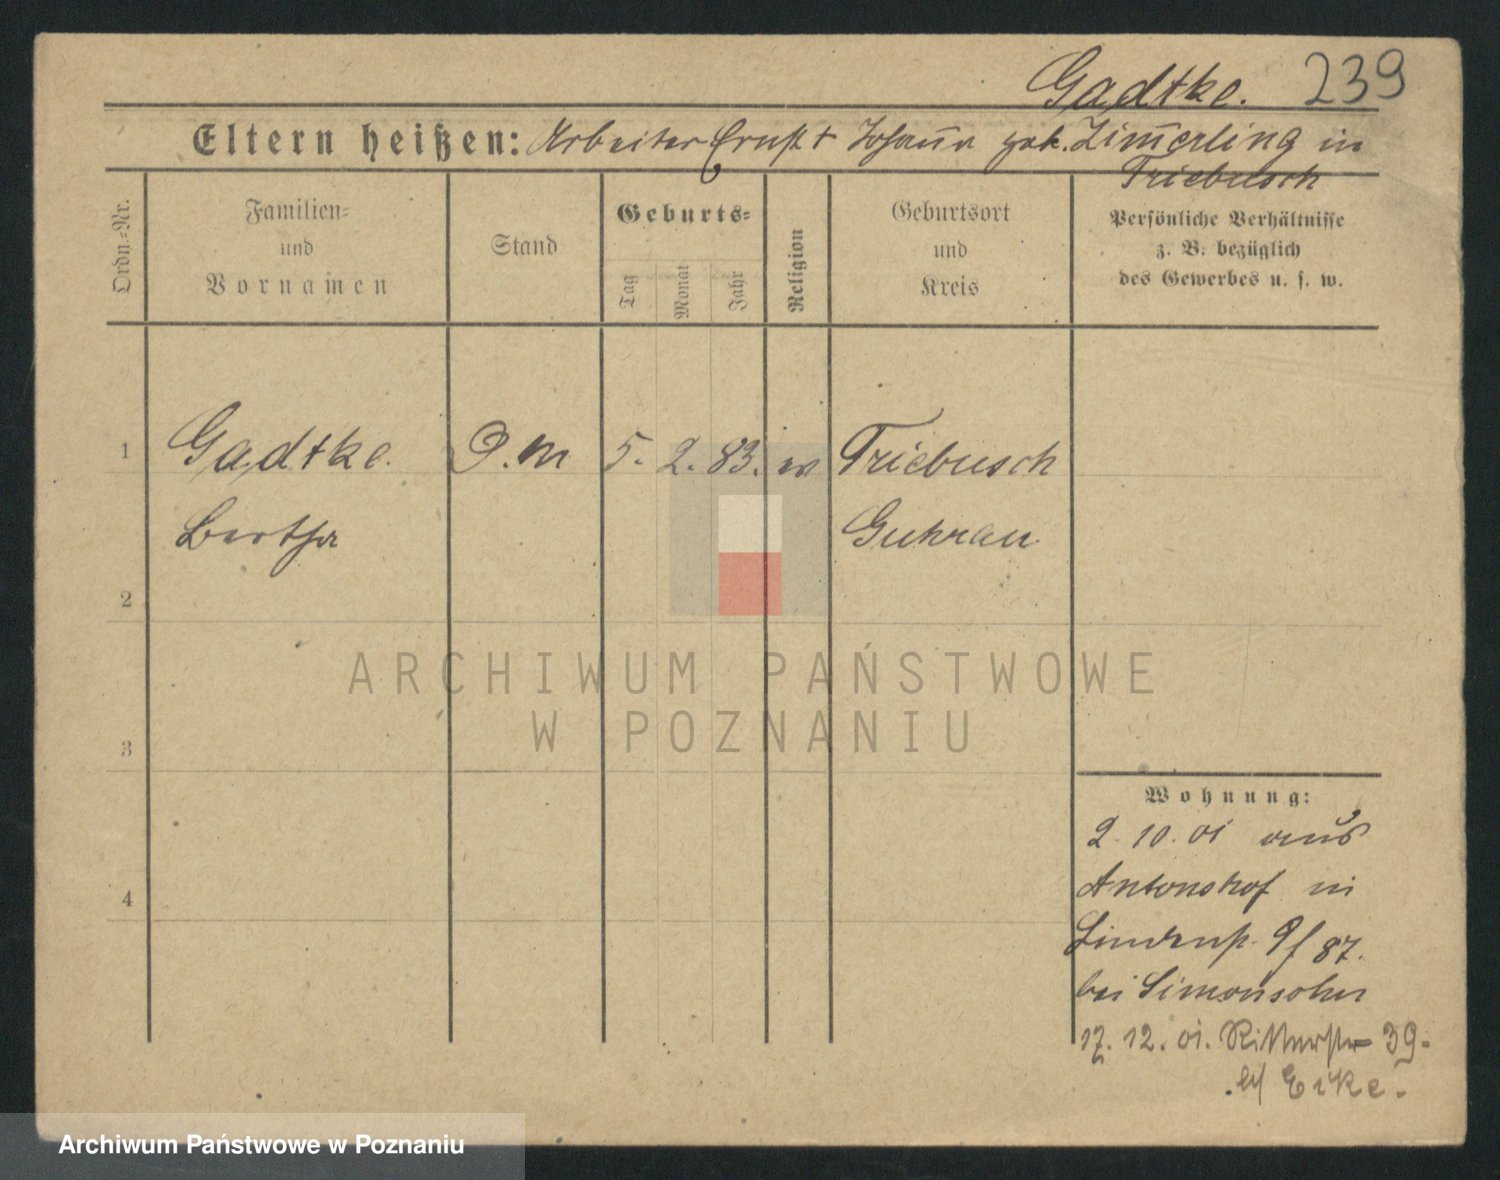 Gadtke. 239
Eltern heißen: Arbeiter Ernst + Johan̄a geb. Zim̄erling in
Triebusch
Ordn.-Nr.
Familien-
und
Vornamen
Stand
Geburts-
Tag
Monat
Jahr
Religion
Geburtsort
und
Kreis
Persönliche Verhältnisse
z. B. bezüglich
des Gewerbes u. s. w.
1 Gadtke. D.M 5. 2. 83. ev Triebusch
Bertha Guhrau
2
ARCHIWUM PAŃSTWOWE
W POZNANIU
3
Wohnung:
2. 10. 01 aus
4 Antonshof in
9/87.
bei Simonsohn
17. 12. 01. Ritterstr 39.
b/ Eike.
Archiwum Państwowe w Poznaniu